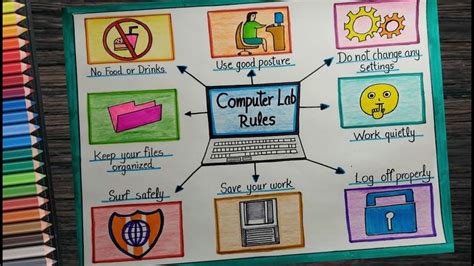 No Food or Drinks
Use good posture
Do not change any
settings
Computer Lab
Rules
Keep your files
organized
Work quietly
Surf safely
Save your work
Log off properly